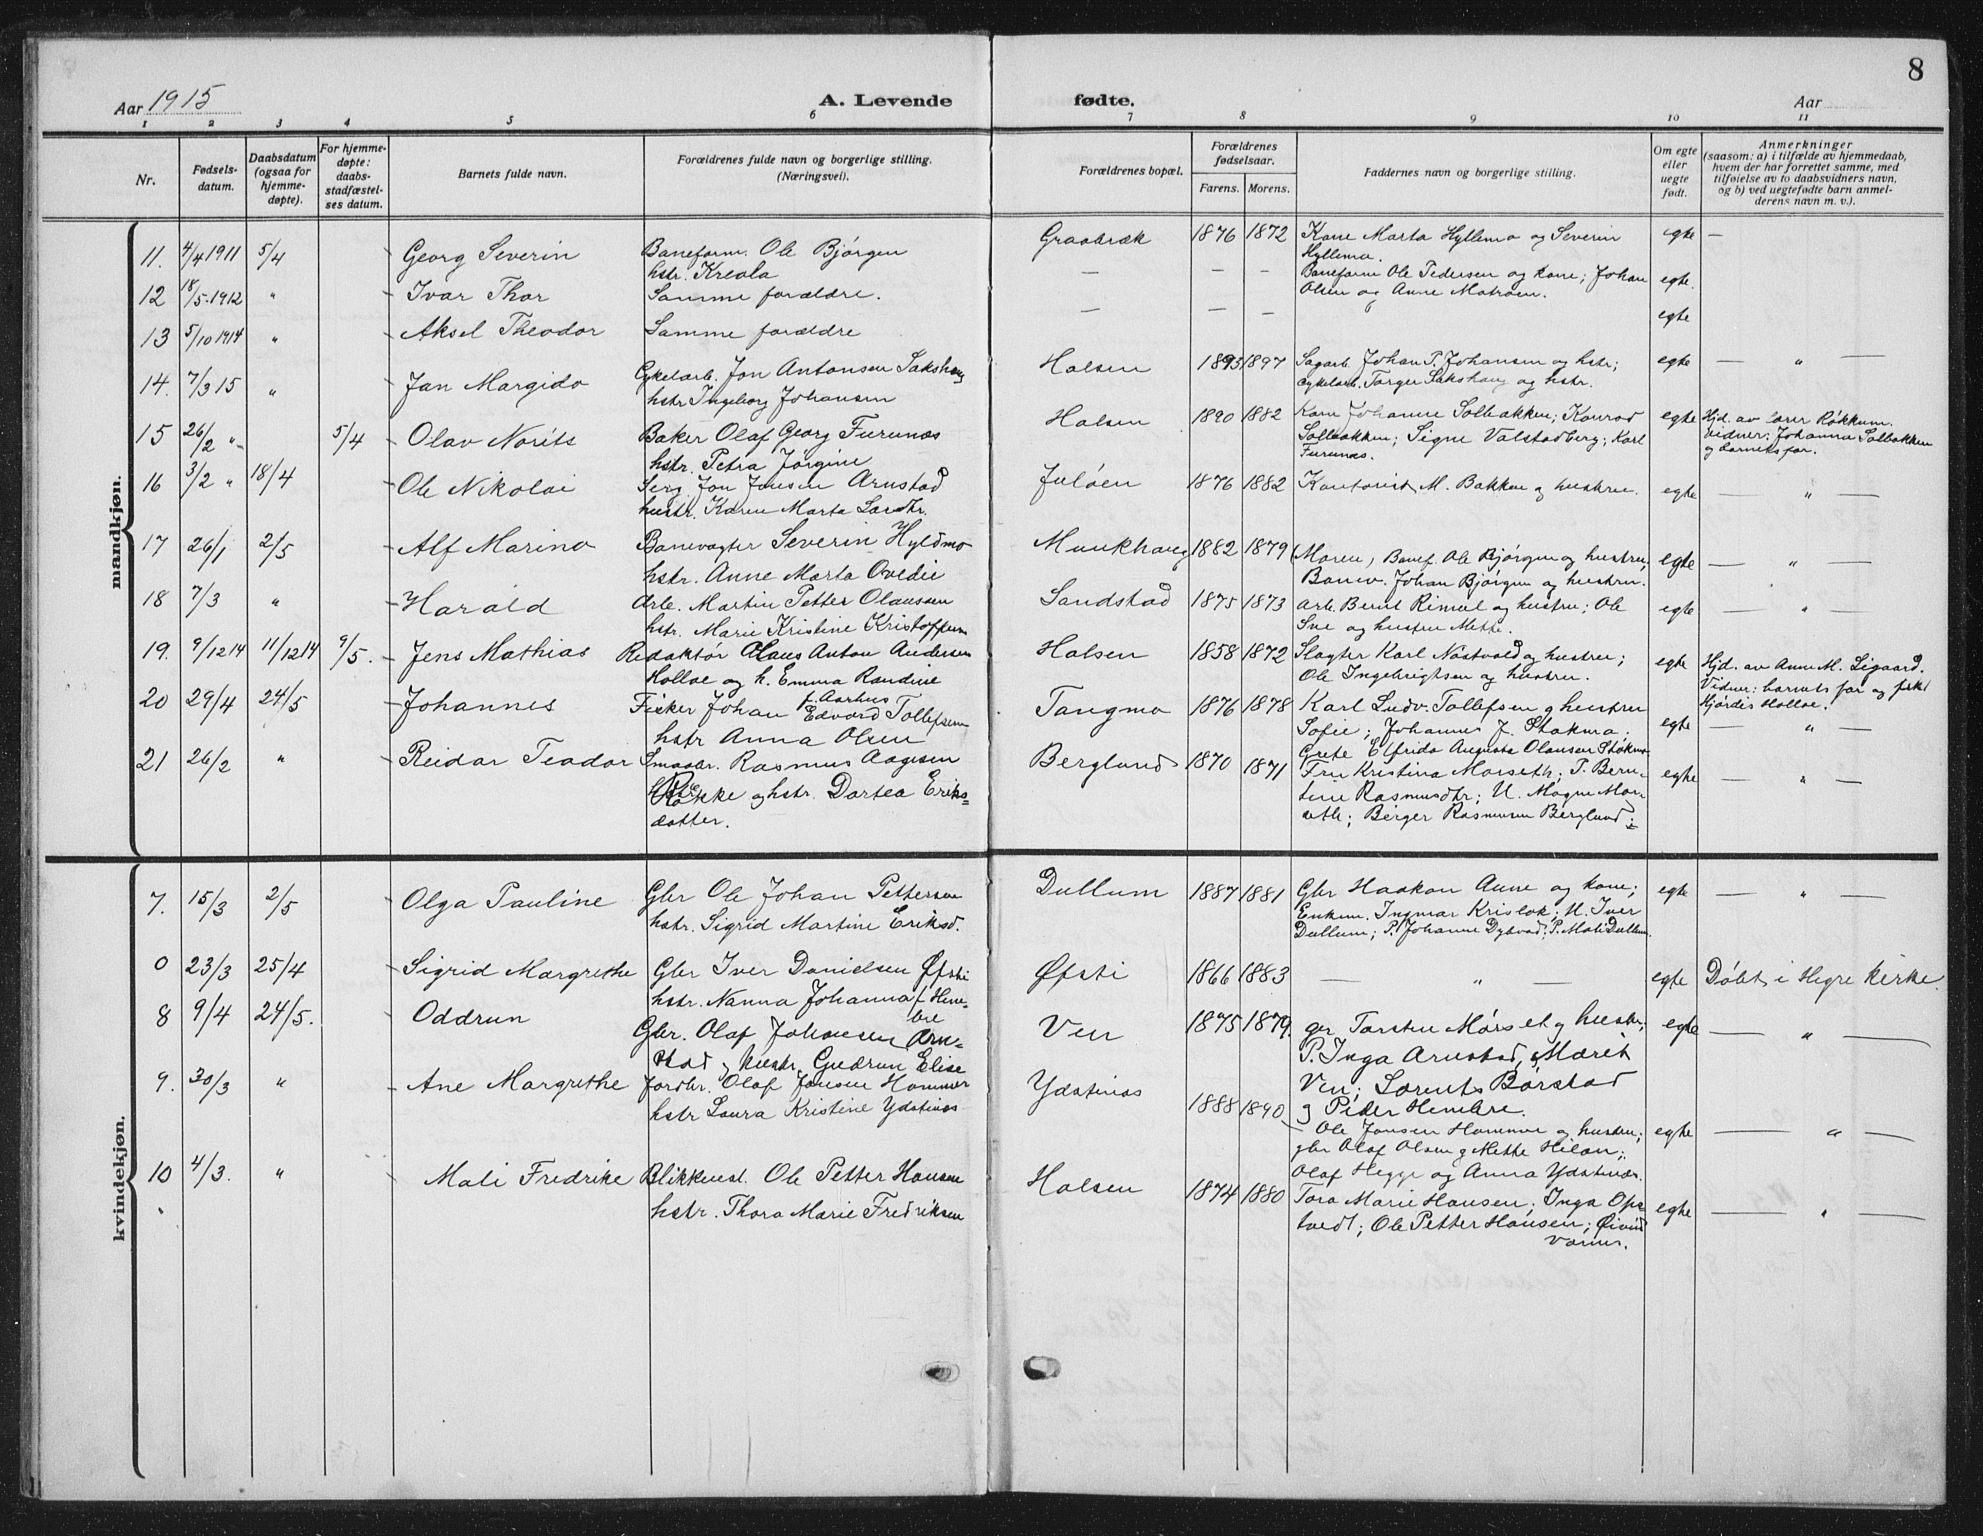 8
Aar 1915
A. Levende
fødte.
Aar
1 2 3 4 5 6 7 8 9 10 11
Nr.
Fødsels-
datum.
Daabsdatum
(ogsaa for
hjemme-
døpte).
For hjemme-
døpte:
daabs-
stadfæstel-
ses datum.
Barnets fulde navn.
Forældrenes fulde navn og borgerlige stilling.
(Næringsvei).
Forældrenes bopæl.
Forældrenes
fødselsaar.
Farens. Morens.
Faddernes navn og borgerlige stilling.
Om egte
eller
uegte
født.
Anmerkninger
(saasom: a) i tilfælde av hjemmedaab,
hvem der har forrettet samme, med
tilføielse av to daabsvidners navn,
og b) ved uegtefødte barn anmel-
derens navn m. v.).
mandkjøn.
11. 4/4 1911 5/4 Georg Severin
Baneform. Ole Bjørgen
hstr. Kreola
Graabræk 1876 1872
Kone Marta Hyllemo og Severin
Hyllemo.
egte —
12 18/5.1912 " Ivar Thor
Samme forældre.
— — —
Baneform Ole Pedersen og kone; Johan
Olsen og Anne Motrøen.
egte.
13 5/10 1914 " Aksel Theodor
Samme forældre
— — —
egte
14. 7/3 15 " Jan Margido
Cykelarb. Jon Antonsen Sakshaug
hstr Ingeborg Johansen
Halsen 1893 1897
Sagarb. Johan P. Johansen og hstr;
cykelarb. Torger Sakshaug og hstr.
egte — " —
15 26/2 " 5/4 Olav Norits
Baker Olaf Georg Furunes
hstr. Petra Jørgine
Halsen 1890 1882
Kone Johanne Solbakken; Konrad
Solbakken; Signe Valstadberg; Karl
Furunes.
egte
Hjd. av lærer Røkkum.
Vidner: Johanna Solbakken
og barnets far.
16 3/2 " 18/4 Ole Nikolai
Serg. Jon Jonsen Arnstad
hustr. Karen Marta Larsdtr.
Juløen 1876 1882
Kontorist M. Bakken og hustru.
egte — " —
17 26/1 2/5 Alf Marino
Banevogter Severin Hyldmo
hstr. Anne Marta Ovedie
Munkhaug 1882 1879
(Moren), Banef. Ole Bjørgen og hustru;
Banev. Johan Bjørgen og hustru.
egte — " —
18 7/3 " Harald
Arb. Martin Petter Olaussen
hstr. Marie Kristine Kristoffersen
Sandstad 1875 1873
Arb. Bernt Rimul og hustru; Ole
Sve og hustru Mette.
egte — " —
19. 9/12 14 11/12 14 9/5. Jens Mathias
Redaktør Olaus Anton Andersen
Holloe og h. Emma Randine
f. Aarhus
Halsen 1858 1872
Slagter Karl Nøstvold og hustru;
Ole Ingebrigtsen og hustru.
egte
Hjd. av Anne M. Ligaard.
Vidner: barnets far og frk
Hjørdis Holloe.
20 29/4 24/5 Johannes
Fisker Johan Edvard Tollefsen
hstr Anna Olsen
Tangmo 1876 1878
Karl Ludv. Tollefsen og hustru
Sofie; Johannes J. Stokmo.
Grete Elfrida Augusta Olausen Stokmo
egte — " —
21 26/2 " Reidar Teodor
Smaabr. Rasmus Aagesen
Rokke og hstr. Dortea Eriks-
datter.
Berglund 1870 1871
Fru Kristina Morseth; P. Bern-
tine Rasmusdtr; U. Magne Mor-
seth; Berger Rasmusen Berglund;
egte — " —
kvindekjøn.
7. 15/3 2/5 Olga Pauline
Gbr Ole Johan Pettersen
hstr. Sigrid Martine Eriksd.
Dullum 1887 1881
Gbr Haakon Aune og kone;
Enkem. Ingmar Krislok; U. Iver
Dullum; P. Johanne Dybvad; P. Mali Dullum.
egte — " —
0 23/3 25/4 Sigrid Margrethe
Gbr Iver Danielsen Øfsti
hstr. Nanna Johanna f. Hem-
bre
Øfsti 1866 1883
— " —
egte Døbt i Hegre kirke.
8 9/4 24/5. Oddrun
Gbr. Olaf Johansen Arn-
stad og hustr. Gudrun Elise
Ven 1875 1879.
gbr Torsten Mørset og hustr;
P. Inga Arnstad, Marit
Ven; Lorents Børstad
og Peder Hembre.
egte — " —
9. 30/3 " Ane Margrethe
Jordbr. Olaf Jonsen Hammer
hstr Laura Kristine Ydstines
Ydstines 1888 1890
Ole Jonsen Hammer og hustru;
gbr Olaf Olsen og Mette Hilan;
Olaf Hegge og Anna Ydstines.
egte — " —
10 4/3. " Mali Fredrike
Blikkensl. Ole Petter Hansen
hstr. Thora Marie Fredriksen
Halsen 1874 1880
Tora Marie Hansen; Inga Ops-
tvedt; Ole Petter Hansen; Øivind
Varnes.
egte — " —